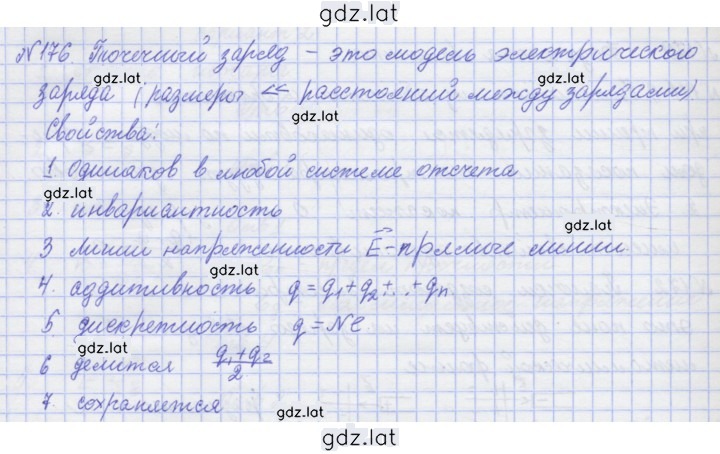 gdz.lat
№176. Точечный заряд - это модель электрического
gdz.lat gdz.lat
заряда (размеры << расстояний между зарядами)
gdz.lat
Свойства:
1 Одинаков в любой системе отсчета
gdz.lat
2. инвариантность
gdz.lat
3 линии напряженности E⃗ - прямые линии.
gdz.lat
4. аддитивность q = q₁+q₂+..+qn
5. дискретность q = Ne
gdz.lat
6 делится (q₁+q₂)/2
7. сохраняется
gdz.lat
gdz.lat